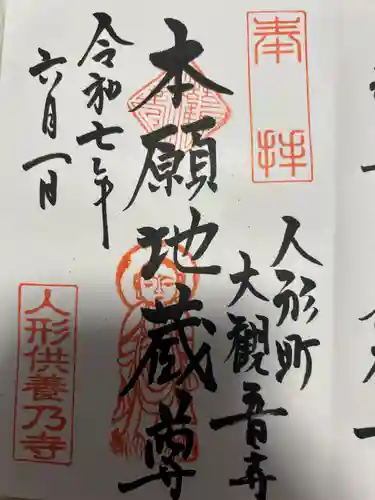 奉拝
人形町
大観音寺
本願地蔵尊
令和七年
六月一日
人形供養乃寺